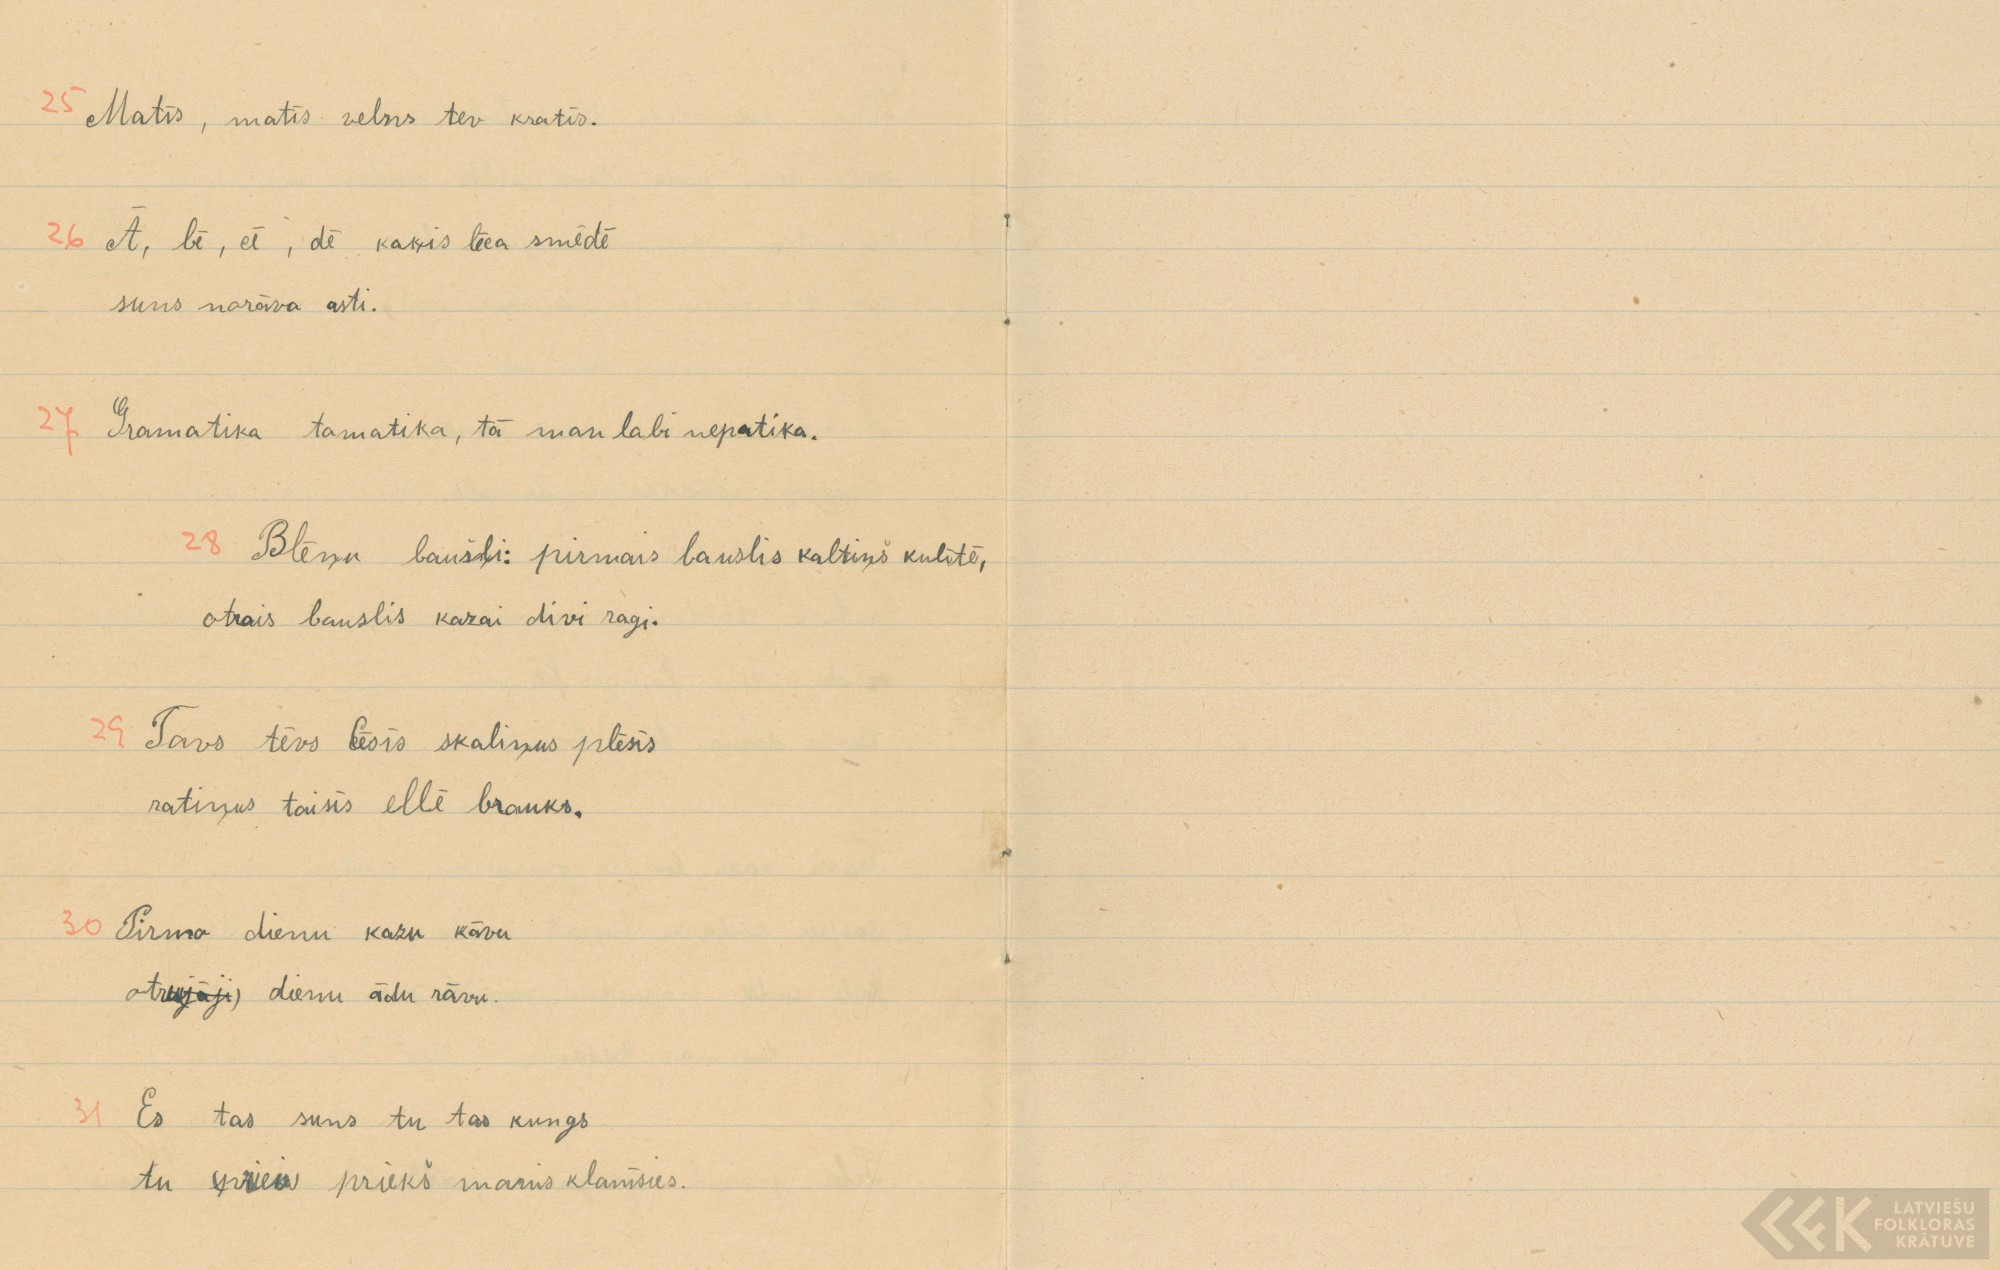 25 Matīs, matīs velns tev kratīs.
26 Ā, bē, cē, dē kaķis lēca smēdē
suns norāva asti.
27 Gramatika tamatika, tā man labi nepatika.
28 Blēņu baušļi: pirmais bauslis kaltiņš kulītē,
otrais bauslis kazai divi ragi.
29 Tavs tēvs lēsīs skaliņus plēsīs
ratiņus taisīs ellē brauks.
30 Pirmo dienu kazu kāvu
dienu ādu rāvu.
31 Es tas suns tu tas kungs
tu priekš manis klanīsies.
LATVIEŠU
FOLKLORAS
KRĀTUVE